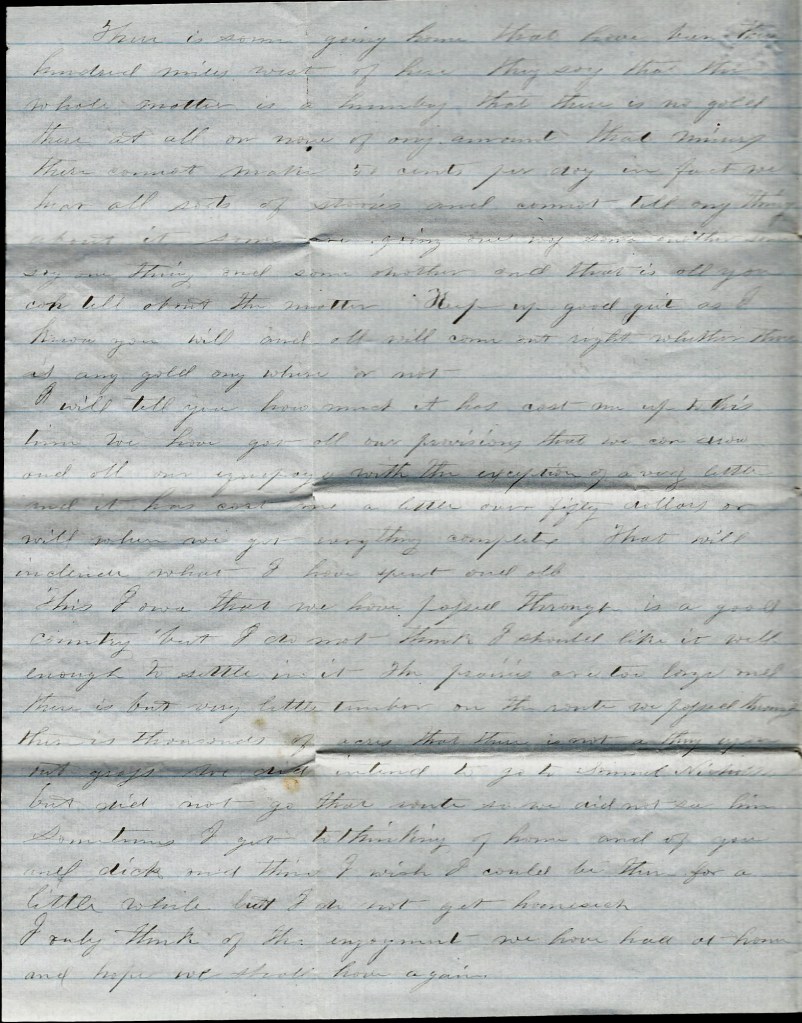 There is some going home that have been three
hundred miles west of here they say that the
whole matter is a humbug that there is no gold
there at all or none of any amount that miners
there cannot make cents per day in fact we
hear all sorts of stories and cannot tell any thing
about it some are going one way some another some
say one thing and some another and that is all you
can tell about the matter Keep up good grit as I
know you will and all will come out right whether there
is any gold any where or not
I will tell you how much it has cost me up to this
time We have got all our provisions that we can
and all our with the exception of a very little
and it has cost me a little over fifty dollars or
will when we get everything complete That will
include what I have spent and all
This Iowa that we have passed through is a good
country but I do not think I should like it well
enough to settle in it the prairies are too large and
there is but very little timber on the route we passed through
there is thousands of acres that there is not a thing upon
but grass We did intend to go to Samuel
but did not go that route so we did not see him
Sometimes I get to thinking of home and of you
and dick and think I wish I could be there for a
little while but I do not get homesick
I only think of the enjoyment we have had at home
and hope we shall have again